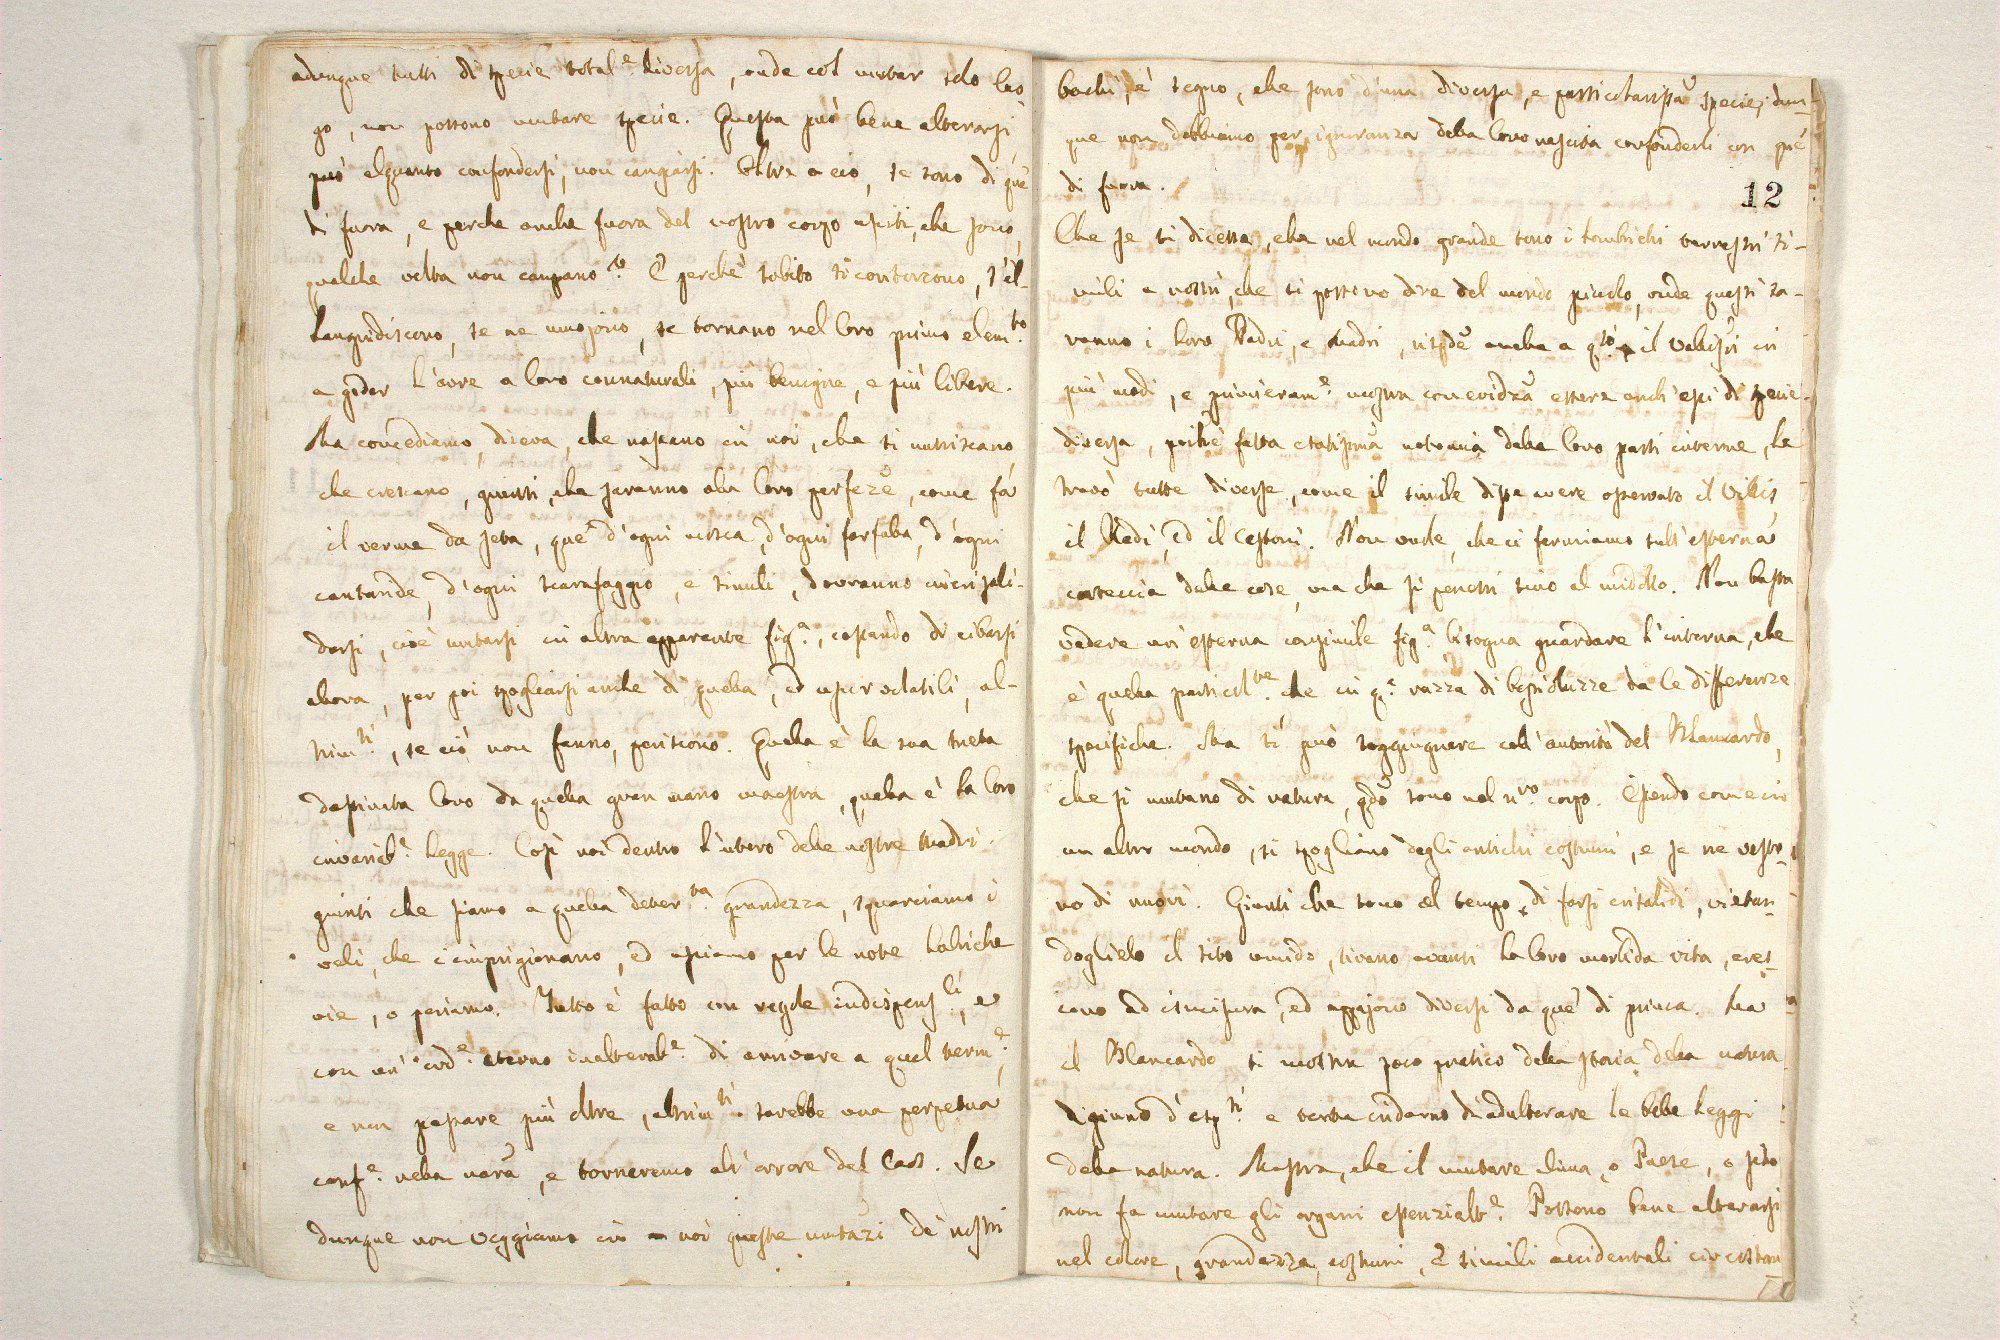 adunque tutti di spezie total.e diversa, onde col mutar solo luo
go, non possono mutare spezie. Questa può bene alterarsi
può alquanto confondersi, non cangiarsi. Oltre a ciò, se sono di que'
di fuora, e perche anche fuora del nostro corpo usciti, che sono,
qualche volta non campano? E perchè subito si contorcono, s'il-
languidiscono, se ne muojono, se tornano nel loro primo elem.to
a goder l'aure a loro connaturali, più benigne, e più libere.
Ma concediamo, diceva, che nascano in noi, che si nutriscano
che crescano, giunti, che saranno alla loro perfeze, come fà
il verme da seta, que' d'ogni mosca, d'ogni farfalla, d'ogni
cantaride, d'ogni scarafaggio, e simili, dovranno incrisali-
darsi, cioè mutarsi in altra apparente fig.a, cessando di cibarsi
allora, per poi spogliarsi anche di quella, ed uscir volatili, al-
trim.ti, se ciò non fanno, periscono. Quella è la sua meta
dessinta loro da quella gran mano maestra, quella è la loro
invariab.e legge. Così noi dentro l'utero delle nostre Madri
giunti che siamo a quella deter.ta grandezza, squarciamo i
veli, che c'imprigionano, ed usciamo per le note lubriche
vie, o periamo. Tutto è fatto con regole indispens.li, e
con un' ord.e eterno inalterab.e di arrivare a quel term.e,
e non passare più oltre, altrim.ti sarebbe una perpetua
conf.e nella nara, e torneremo all'orrore del Caos. Se
dunque non veggiamo in noi queste mutazi de' nostri
bachi, è segno, che sono d'una diversa, e particolarissa spezie, dun-
que non dobbiamo per ignoranza della loro nascita confonderli con que'
di fuora.
12
Che se si dicesse, che nel mondo grande sono i lombrichi terrestri si-
mili a nostri, che si possono dire del mondo piccolo, onde questi sa-
ranno i loro Padri, e Madri, rispde anche a q.sto il Valisni in
più modi, e primieram.e mostra con evidza essere anch'essi di spezie
diversa, poichè fatta esatissma notomia delle loro parti interne, le
trovò tutte diverse, come il simile disse avere osservato il Vilis,
il Redi, ed il Cestoni. Non vuole, che ci fermiamo sull'esterna
corteccia delle cose, ma che si penetri sino al midollo. Non basta
vedere un'esterna consimile fig.a bisogna guardare l'interna, che
è quella particol.re che in q.a razza di bestioluzze da le differenze
specifiche. Ma si può soggiugnere coll'autorità del Blancardo,
che si mutano di natura, qdo sono nel n.ro corpo. Essendo come in
un altro mondo, si spogliano degli antichi costumi, e se ne vesto
no di nuovi. Giunti che sono al tempo di farsi crisalidi, vietan-
doglielo il sito umido, tirano avanti la loro morbida vita, cres-
cono ad ismisura, ed appajono diversi da que' di prima. Ma
il Blancardo si mostra poco pratico della storia della natura
digiuno d'esp.ti e tenta indarno di adulterare le belle leggi
della natura. Mostra, che il mutare clima, o Paese, o sito
non fa mutare gli organi essenzialm.e Possono bene alterarsi
nel colore, grandezza, costumi, e simili accidentali circostan-